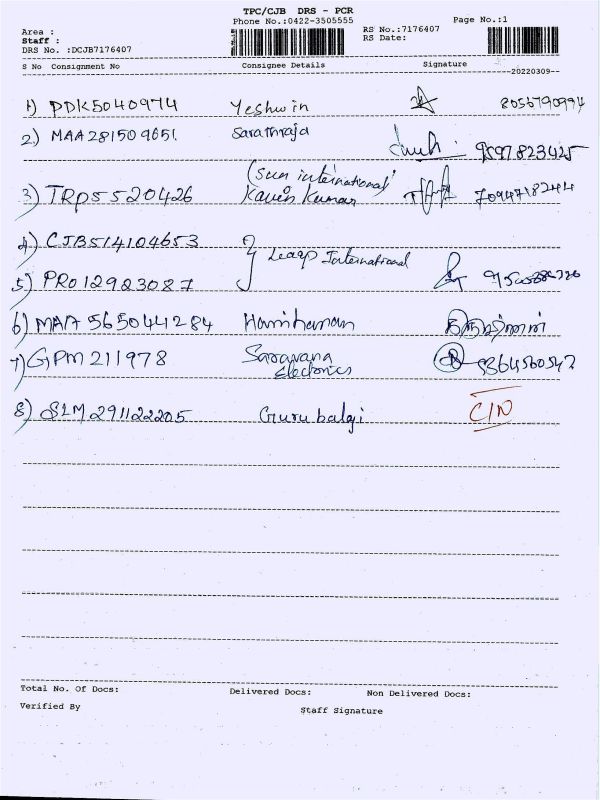 TPC/CJB DRS - PCR
Phone No.:0422-3505555
Page No.:1
Area :
Staff :
DRS No. :DCJB7176407
RS No.:7176407
RS Date:
S No Consignment No Consignee Details Signature
--20220309--
1) PDK5040974 Yeshwin 8056790994
2) MAA281509651 Sarathraja 9597823425
(Sun international)
3) TRP5520426 Kavin Kumar 7094718244
4) CJB514104653
Leaap International
5) PRO12923087
6) MAA565041284 Harihaman
7) GPM211978 Saravana 9364560542
Electronics
8) SLM291122205 Gurubalaji C/N
Total No. Of Docs: Delivered Docs: Non Delivered Docs:
Verified By
Staff Signature